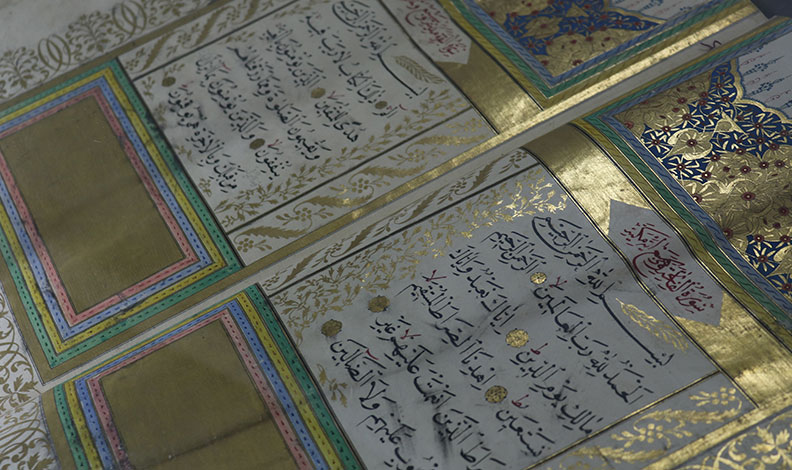 بسم الله الرحمن الرحيم
الحمد لله رب العالمين الرحمن الرحيم
مالك يوم الدين اياك نعبد واياك
نستعين اهدنا الصراط المستقيم
صراط الذين انعمت عليهم غير
عليهم ولا الضالين
بسم الله الرحمن الرحيم
الم ذلك الكتاب لا ريب فيه
هدى للمتقين الذين يؤمنون
ويقيمون الصلوة ومما رزقناهم
ينفقون والذين يؤمنون
من قبلك وبالاخرة هم يوقنون